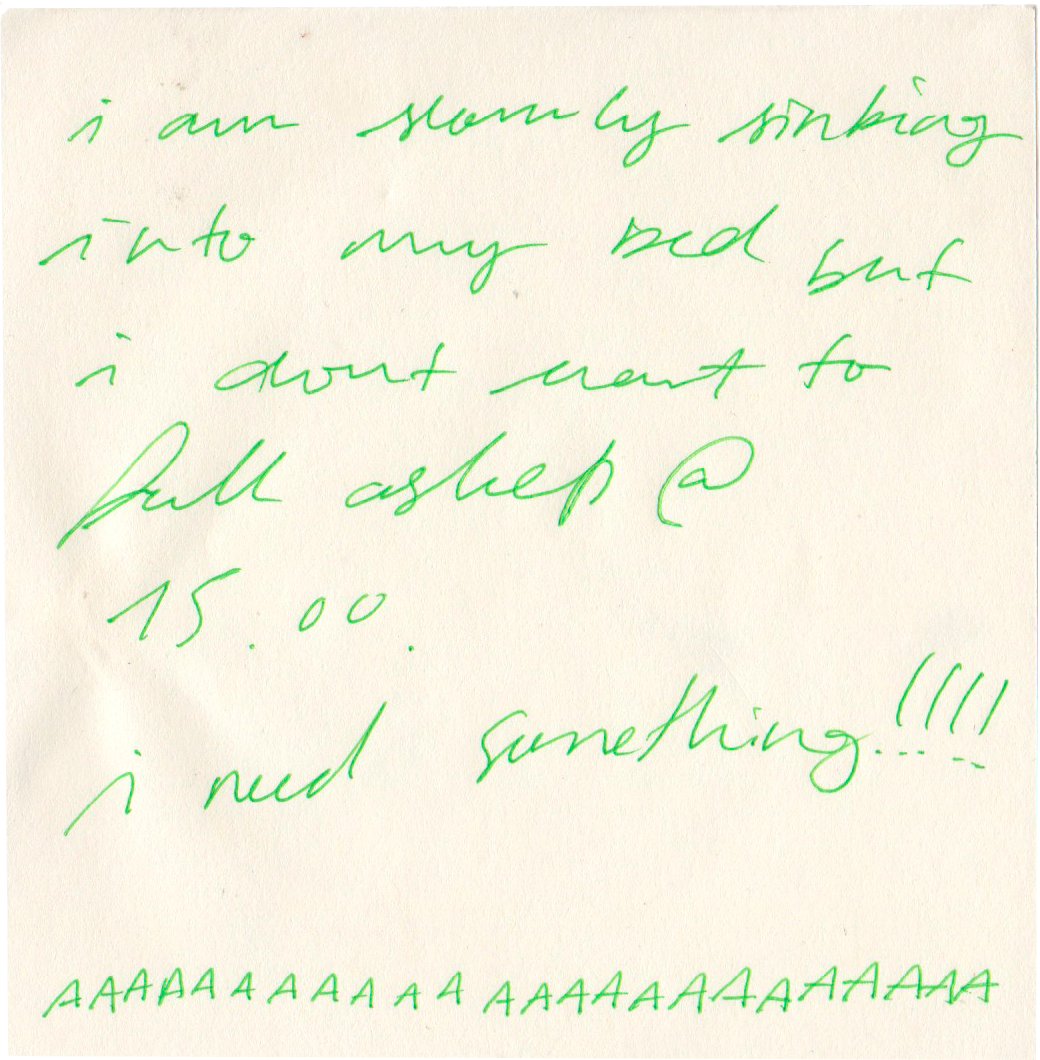 i am slowly sinking
into my bed but
i dont want to
fall asleep @
15.00.
i need something!!!!
AAAAAAAAAAAAAAAAAAAAAAAAA